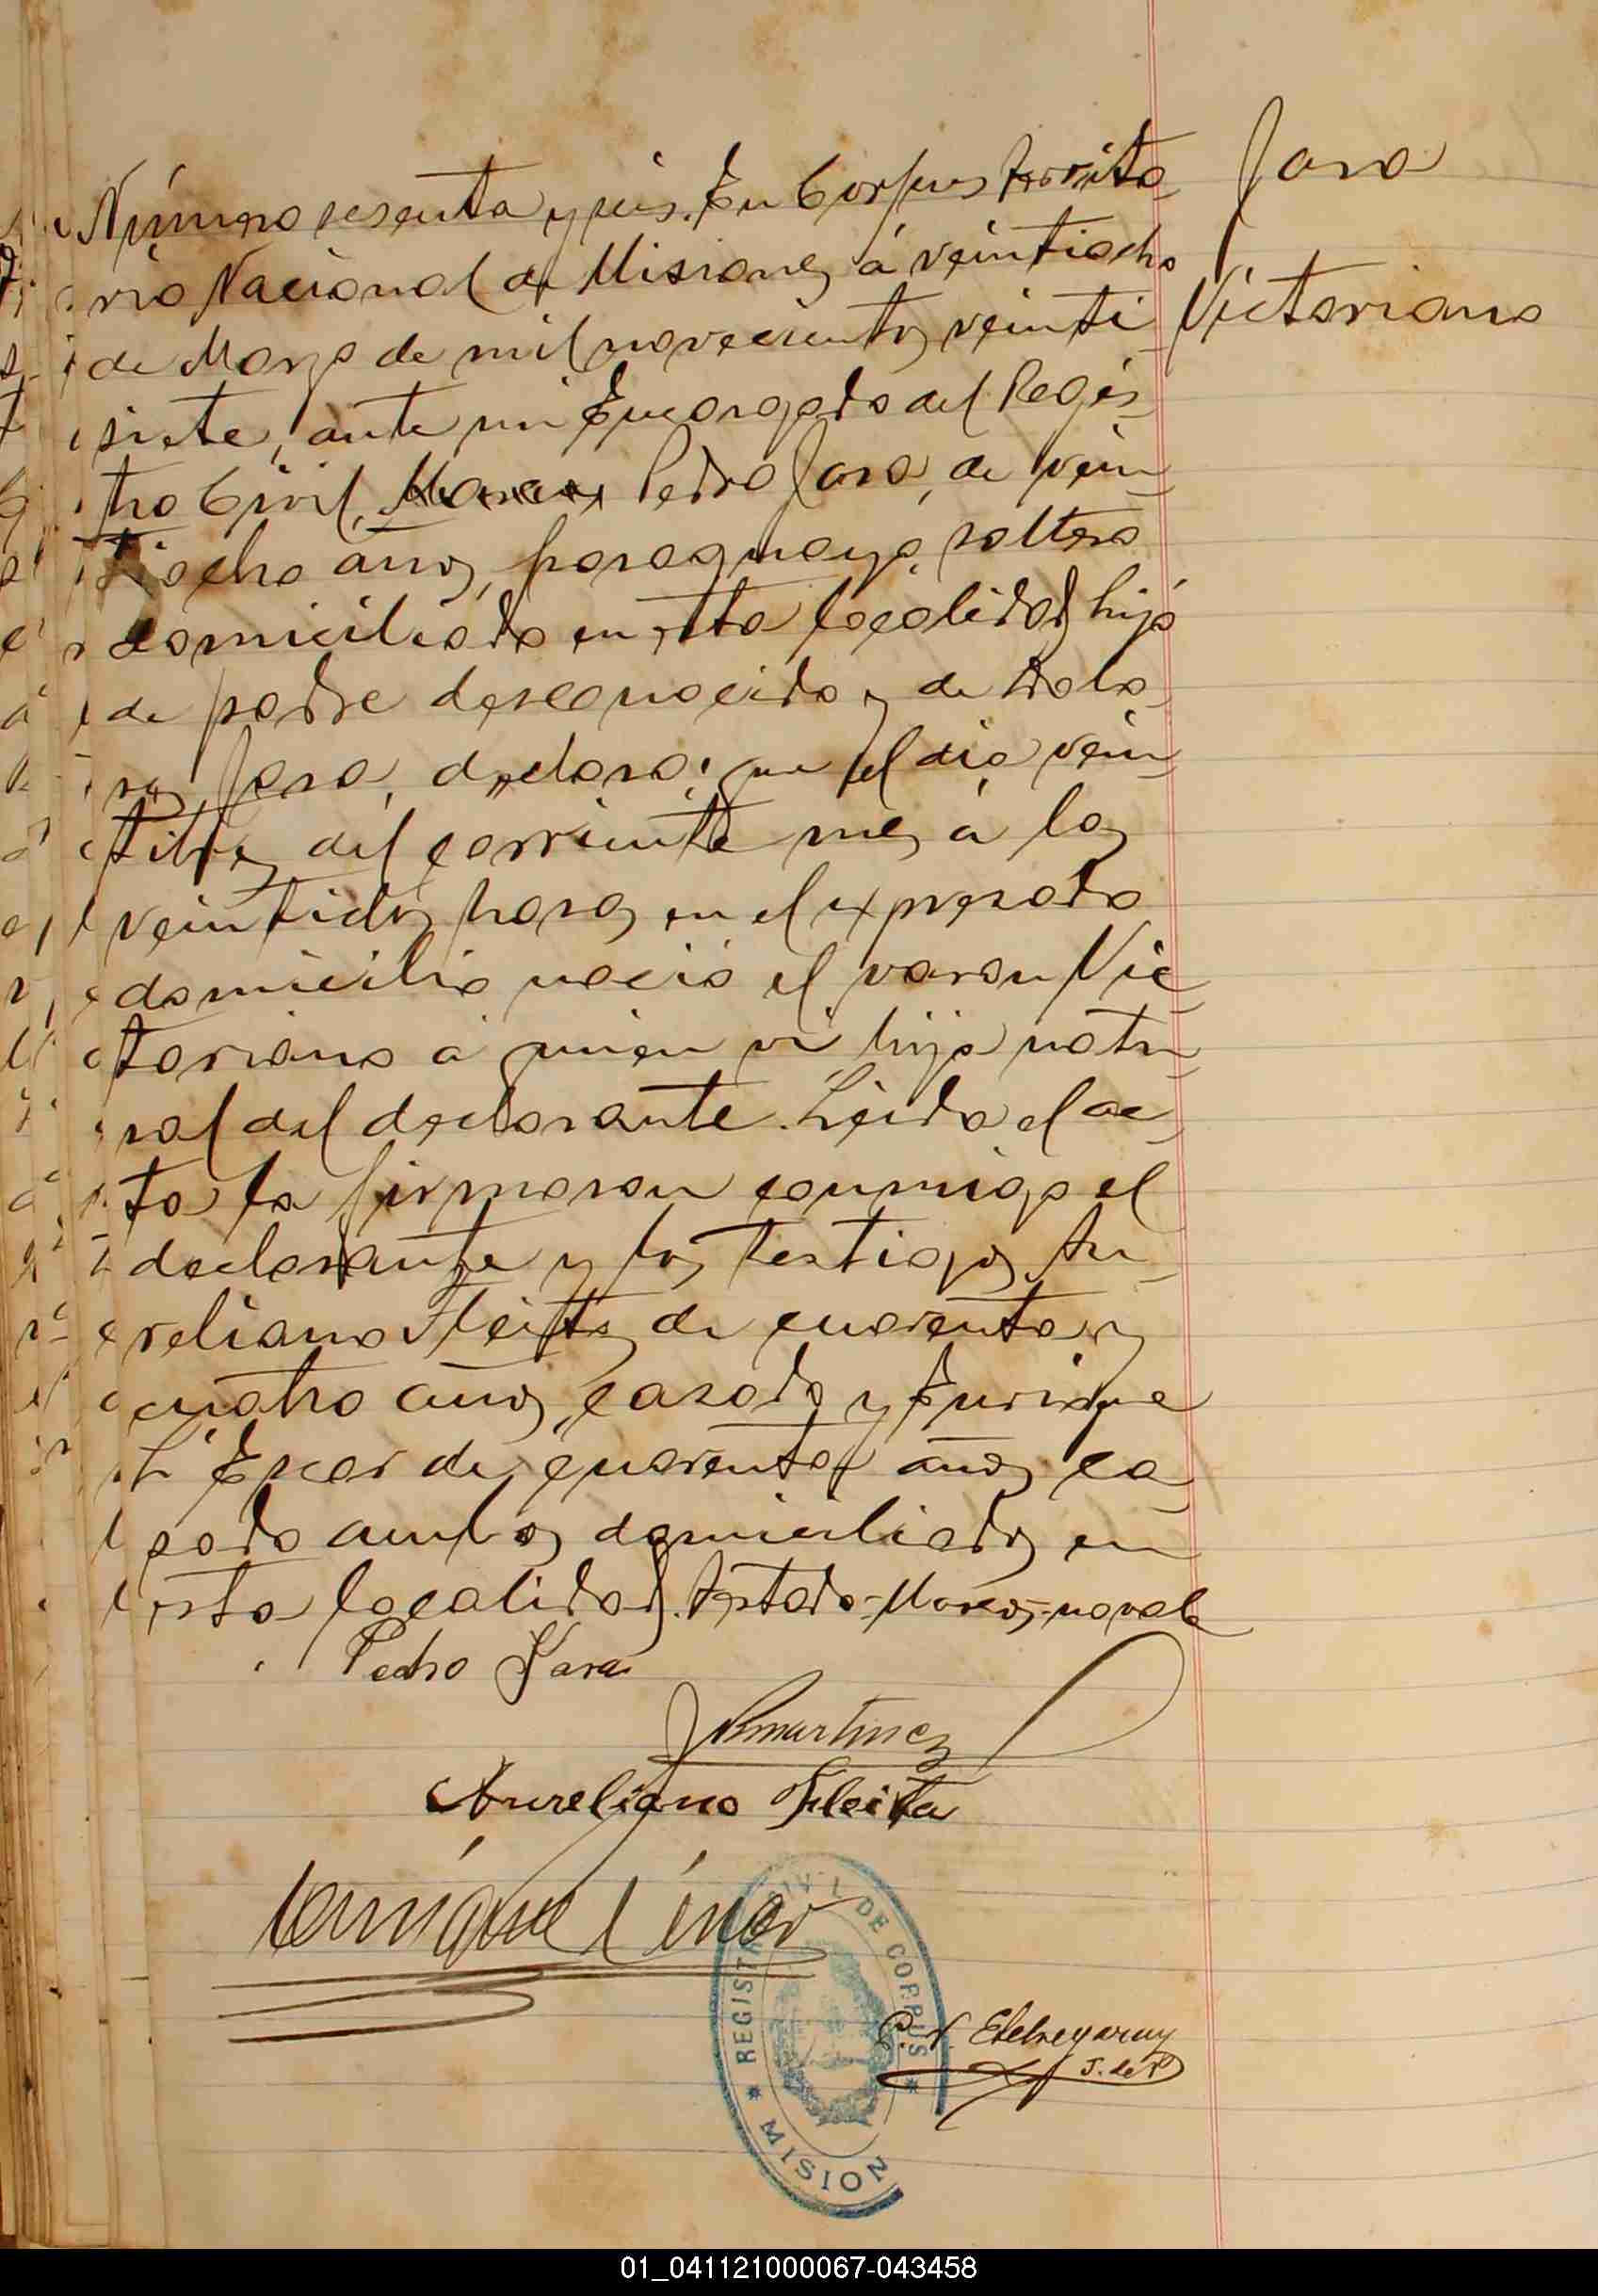 Jara
Victoriano
Número sesenta y seis. En Corpus Territo
rio Nacional de Misiones á veintiocho
de Marzo de mil novecientos veinti
siete, ante mi Encargado del Regis
tro Civil, Marcos Pedro Jara, de vein
tiocho años, paraguayo, soltero
domiciliado en esta localidad, hijo
de padre desconocido y de Dolo
res Jara, declaró: que el dia vein
titres del corriente mes á las
veintidos horas en el expresado
domicilio nació el varon Vic
toriano á quien vi, hijo natu
ral del declarante. Leida el ac
ta la firmaron conmigo el
declarante y los testigos Au
reliano Fleitas de cuarenta y
cuatro años, casado y Enrique
L. de cuarenta años ca
sado ambos domiciliados en
esta localidad. Testado-Marcos-no vale
Pedro Jara
Martinez
Aureliano Fleita
Enrique
REGISTRO CIVIL DE CORPUS
MISION
Etchegaray
J. de P
01_041121000067-043458